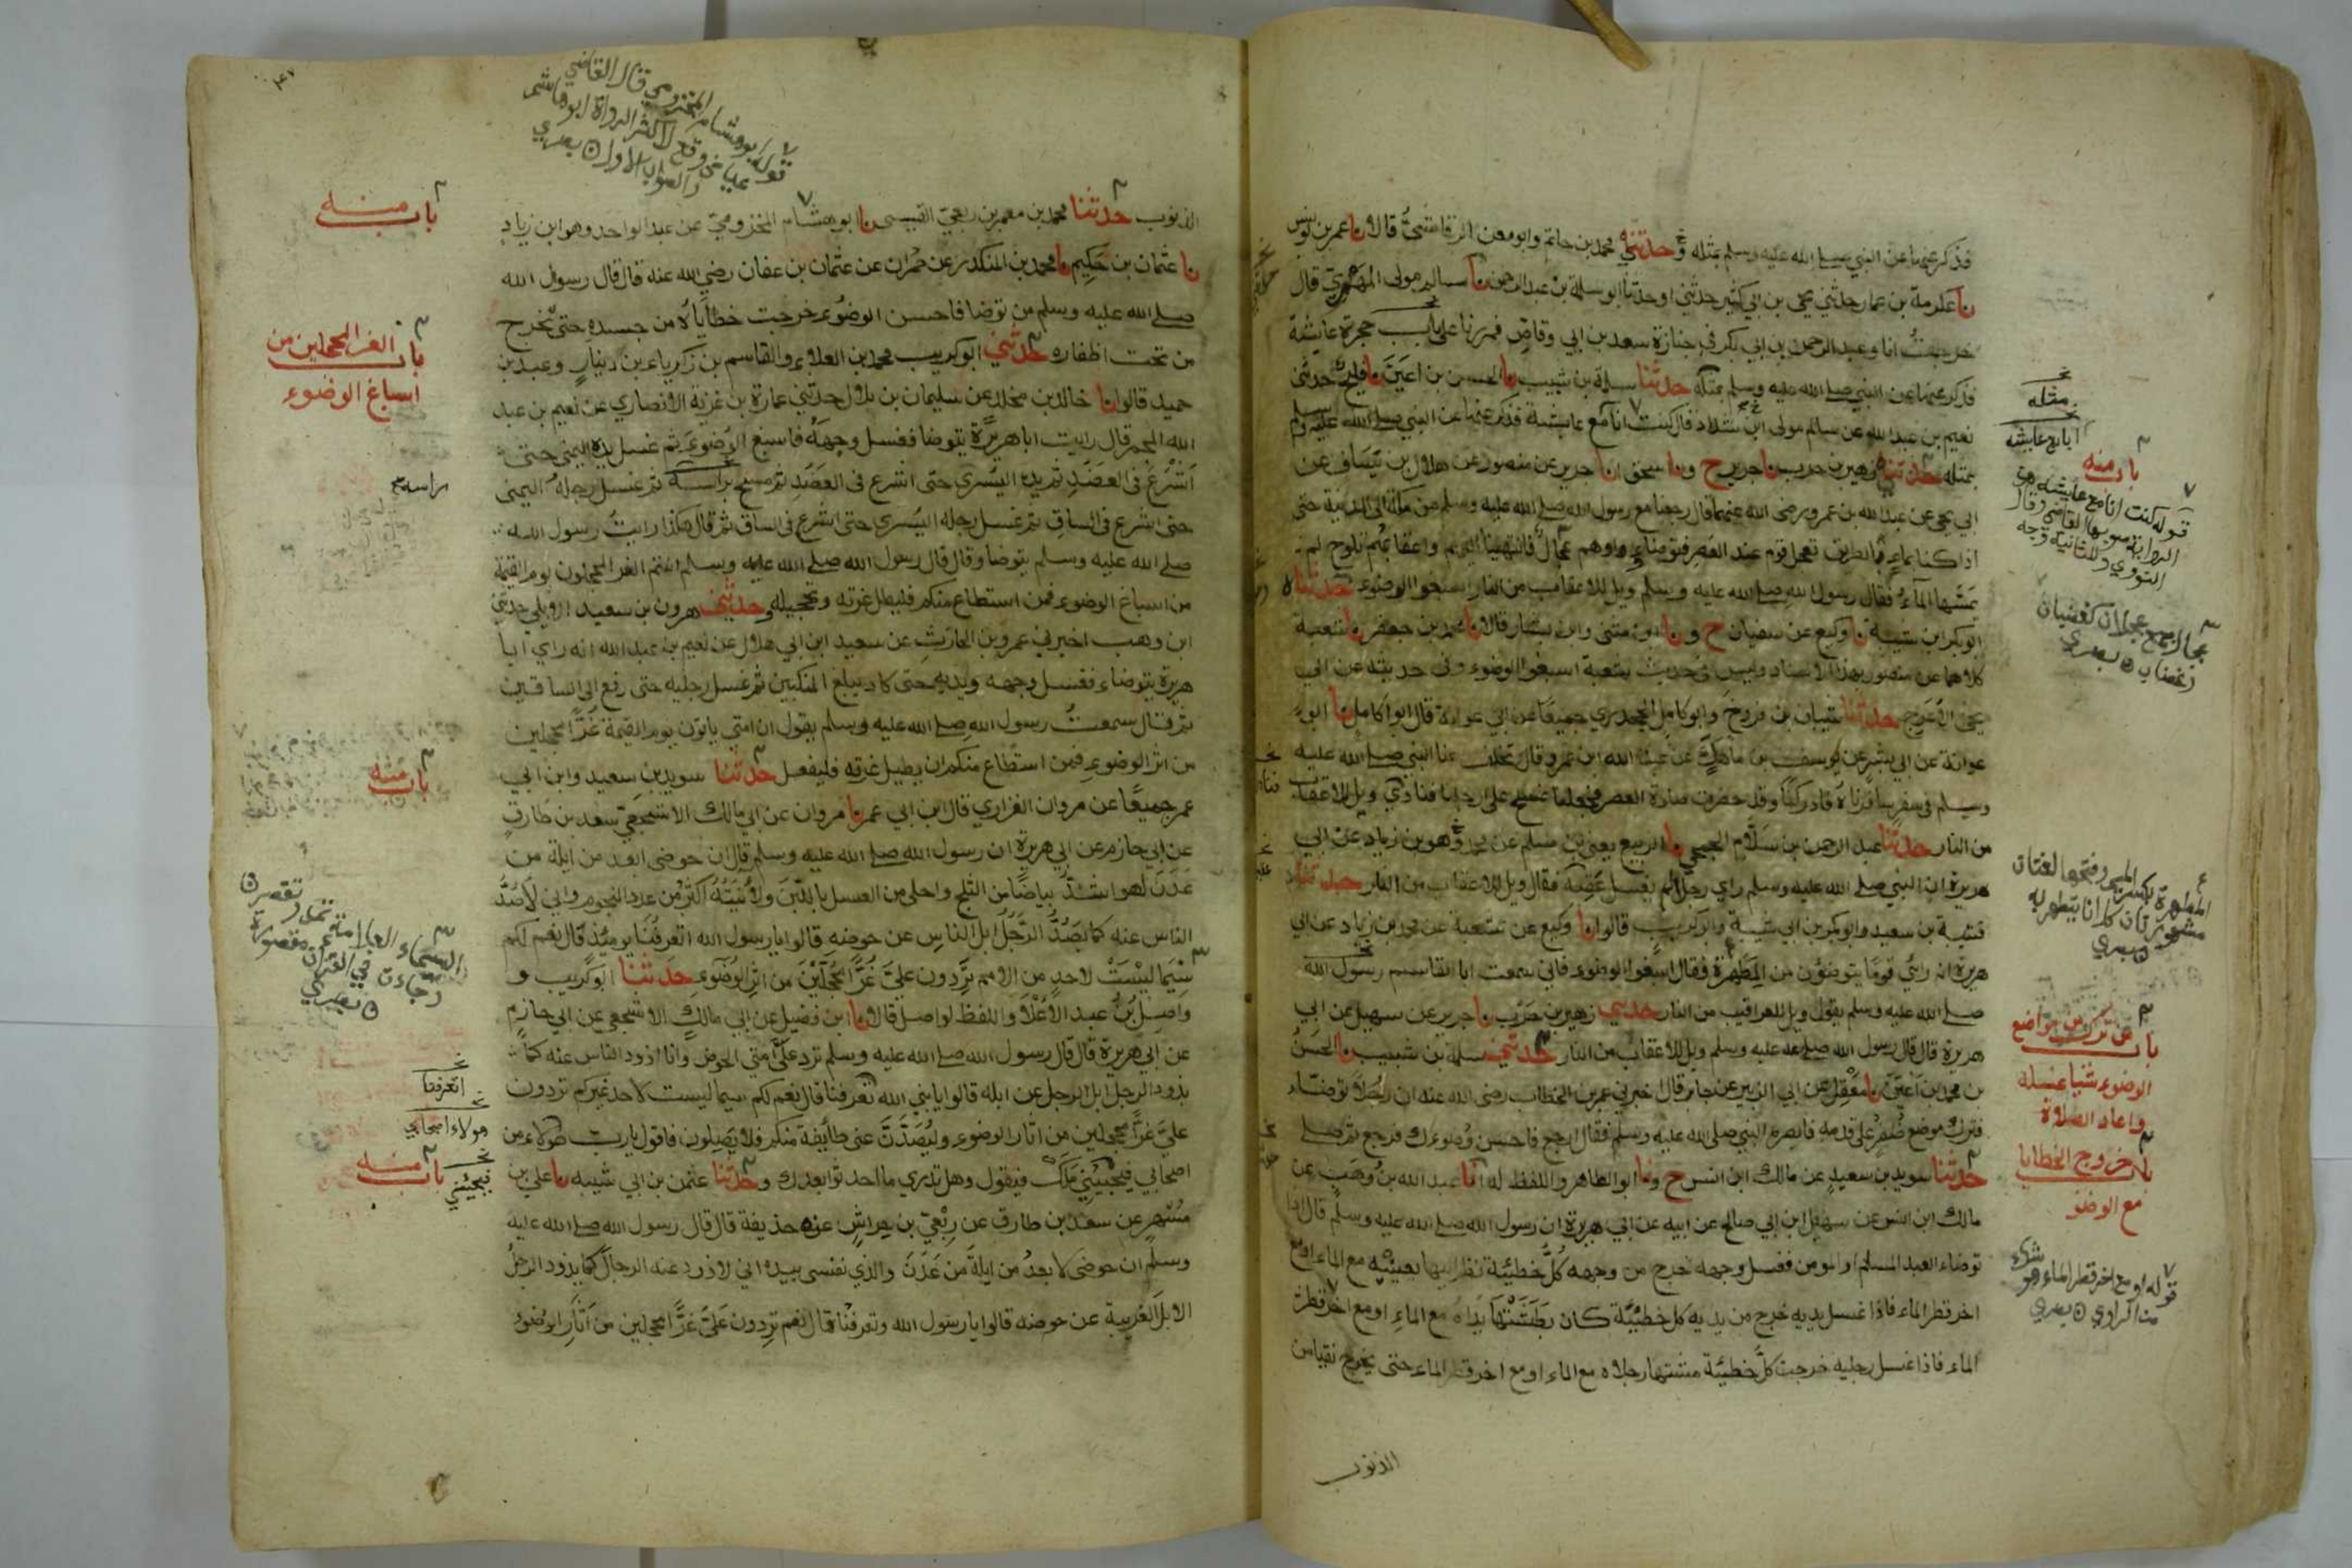 فذكر عنها عن النبي صلى الله عليه وسلم بمثله وحدثني محمد بن حاتم وابو معن الرقاشي قالا نا عمر بن يونس
نا عكرمة بن عمار حدثني يحيى بن ابي كثير حدثني او حدثنا ابو سلمة بن عبد الرحمن نا سالم مولى المهري قال
خرجت انا وعبد الرحمن بن ابي بكر في جنازة سعد بن ابي وقاص فمررنا على باب حجرة عايشة
فذكر عنها عن النبي صلى الله عليه وسلم مثله حدثنا سلمة بن شبيب نا الحسن بن اعين نا فليح حدثني
نعيم بن عبد الله عن سالم مولى ابن شداد قال كنت انا مع عايشة فذكر عنها عن النبي صلى الله عليه وسلم
بمثله حدثني زهير بن حرب نا جرير ح ونا اسحق انا جرير عن منصور عن هلال بن يساف عن
ابي يحيى عن عبد الله بن عمرو رضي الله عنهما قال رجعنا مع رسول الله صلى الله عليه وسلم من مكة الى المدينة حتى
اذا كنا بماء بالطريق تعجل قوم عند العصر فتوضاوا وهم عجال فانتهينا اليهم واعقابهم تلوح لم
يمسها الماء فقال رسول الله صلى الله عليه وسلم ويل للاعقاب من النار اسبغوا الوضوء حدثناه
ابو بكر ابن شيبة نا وكيع عن سفيان ح ونا ابن مثنى وابن بشار قالا نا محمد بن جعفر نا شعبة
كلاهما عن منصور بهذا الاسناد وليس في حديث شعبة اسبغوا الوضوء وفي حديثه عن ابي
يحيى الاعرج حدثنا شيبان بن فروخ وابو كامل الجحدري جميعا عن ابي عوانة قال ابو كامل نا ابو
عوانة عن ابي بشر عن يوسف بن ماهك عن عبد الله ابن عمرو قال تخلف عنا النبي صلى الله عليه
وسلم في سفر سافرناه فادركنا وقد حضرت صلاة العصر فجعلنا نمسح على ارجلنا فنادى ويل للاعقاب
من النار حدثنا عبد الرحمن بن سلام الجمحي نا الربيع يعني بن مسلم عن محمد وهو بن زياد عن ابي
هريرة ان النبي صلى الله عليه وسلم راى رجلا لم يغسل عقبه فقال ويل للاعقاب من النار حدثنا
قتيبة بن سعيد وابو بكر بن ابي شيبة وابو كريب قالوا نا وكيع عن شعبة عن محمد بن زياد عن ابي
هريرة انه راى قوما يتوضؤن من المطهرة فقال اسبغوا الوضوء فاني سمعت ابا القاسم رسول الله
صلى الله عليه وسلم يقول ويل للعراقيب من النار حدثني زهير بن حرب نا جرير عن سهيل عن ابي
هريرة قال قال رسول الله صلى الله عليه وسلم ويل للاعقاب من النار حدثني سلمة بن شبيب نا الحسن
بن محمد بن اعين نا معقل عن ابي الزبير عن جابر قال اخبرني عمر بن الخطاب رضي الله عنه ان رجلا توضاء
فترك موضع ظفر على قدمه فابصره النبي صلى الله عليه وسلم فقال ارجع فاحسن وضوءك فرجع ثم صلى
حدثنا سويد بن سعيد عن مالك ابن انس ح ونا ابو الطاهر واللفظ له انا عبد الله بن وهب عن
مالك ابن انس عن سهيل ابن ابي صالح عن ابيه عن ابي هريرة ان رسول الله صلى الله عليه وسلم قال اذا
توضاء العبد المسلم او المومن فغسل وجهه خرج من وجهه كل خطيئة نظر اليها بعينيه مع الماء او مع
اخر قطر الماء فاذا غسل يديه خرج من يديه كل خطيئة كان بطشتها يداه مع الماء او مع اخر قطر
الماء فاذا غسل رجليه خرجت كل خطيئة مشتها رجلاه مع الماء او مع اخر قطر الماء حتى يخرج نقيا من
الذنوب
مثله
اباىع عايشه
باب منه
قوله كنت انا مع عايشه هي
الرواية صوبها القاضي وقال
النووي وللثانية وجه
عجال جمع عجلان كغضبان
وغضاب
المطهرة بكسر الميم وفتحها لغتان
مشهورتان كل انا يتطهر به
باب من ترك من مواضع
الوضوء شيا غسله
واعاد الصلاة
باب خروج الخطايا
مع الوضو
قوله او مع اخر قطر الماء هو شك
من الراوي
قوله ابو هشام المخزومي قال القاضي
عياض وقع لاكثر الرواة ابو هاشم
والصواب الاول
الذنوب حدثنا محمد بن معمر بن ربعي القيسي نا ابو هشام المخزومي عن عبد الواحد وهو ابن زياد
نا عثمان بن حكيم نا محمد بن المنكدر عن حمران عن عثمان بن عفان رضي الله عنه قال قال رسول الله
صلى الله عليه وسلم من توضا فاحسن الوضوء خرجت خطاياه من جسده حتى تخرج
من تحت اظفاره حدثني ابو كريب محمد بن العلاء والقاسم بن زكرياء بن دينار وعبد بن
حميد قالوا نا خالد بن مخلد عن سليمان بن بلال حدثني عمارة بن غزية الانصاري عن نعيم بن عبد
الله المجمر قال رايت ابا هريرة يتوضا فغسل وجهه فاسبغ الوضوء ثم غسل يده اليمنى حتى
اشرع في العضد ثم يده اليسرى حتى اشرع في العضد ثم مسح براسه ثم غسل رجله اليمنى
حتى اشرع في الساق ثم غسل رجله اليسرى حتى اشرع في الساق ثم قال هكذا رايت رسول الله
صلى الله عليه وسلم يتوضا وقال قال رسول الله صلى الله عليه وسلم انتم الغر المحجلون يوم القيمة
من اسباغ الوضوء فمن استطاع منكم فليطل غرته وتحجيله وحدثني هرون بن سعيد الايلي حدثني
ابن وهب اخبرني عمرو بن الحارث عن سعيد ابن ابي هلال عن نعيم بن عبد الله انه راى ابا
هريرة يتوضاء فغسل وجهه ويديه حتى كاد يبلغ المنكبين ثم غسل رجليه حتى رفع الى الساقين
ثم قال سمعت رسول الله صلى الله عليه وسلم يقول ان امتي ياتون يوم القيمة غرا محجلين
من اثر الوضوء فمن استطاع منكم ان يطيل غرته فليفعل حدثنا سويد بن سعيد وابن ابي
عمر جميعا عن مروان الفزاري قال ابن ابي عمر نا مروان عن ابي مالك الاشجعي سعد بن طارق
عن ابي حازم عن ابي هريرة ان رسول الله صلى الله عليه وسلم قال ان حوضي ابعد من ايلة من
عدن لهو اشد بياضا من الثلج واحلى من العسل باللبن ولانيته اكثر من عدد النجوم واني لاصد
الناس عنه كما يصد الرجل ابل الناس عن حوضه قالوا يا رسول الله اتعرفنا يومئذ قال نعم لكم
سيما ليست لاحد من الامم تردون علي غرا محجلين من اثر الوضوء حدثنا ابو كريب و
واصل بن عبد الاعلا واللفظ لواصل قالا نا ابن فضيل عن ابي مالك الاشجعي عن ابي حازم
عن ابي هريرة قال قال رسول الله صلى الله عليه وسلم ترد علي امتي الحوض وانا اذود الناس عنه كما
يذود الرجل ابل الرجل عن ابله قالوا يا نبي الله تعرفنا قال نعم لكم سيما ليست لاحد غيركم تردون
علي غرا محجلين من اثار الوضوء وليصدن عني طائفة منكم فلا يصلون فاقول يا رب هولاء من
اصحابي فيجيبني ملك فيقول وهل تدري ما احدثوا بعدك وحدثنا عثمن بن ابي شيبه نا علي بن
مسهر عن سعد بن طارق عن ربعي بن حراش عن حذيفة قال قال رسول الله صلى الله عليه
وسلم ان حوضي لابعد من ايلة من عدن والذي نفسي بيده اني لاذود عنه الرجال كما يذود الرجل
الابل الغريبة عن حوضه قالوا يا رسول الله وتعرفنا قال نعم تردون علي غرا محجلين من اثار الوضوء
باب منه
باب الغر المحجلين من
اسباغ الوضوء
راسه
باب منه
السيماء العلامة تمد وتقصر
وجاءت في القران مقصورة
اتعرفنا
هولاء اصحابي
باب منه
فيجيئني